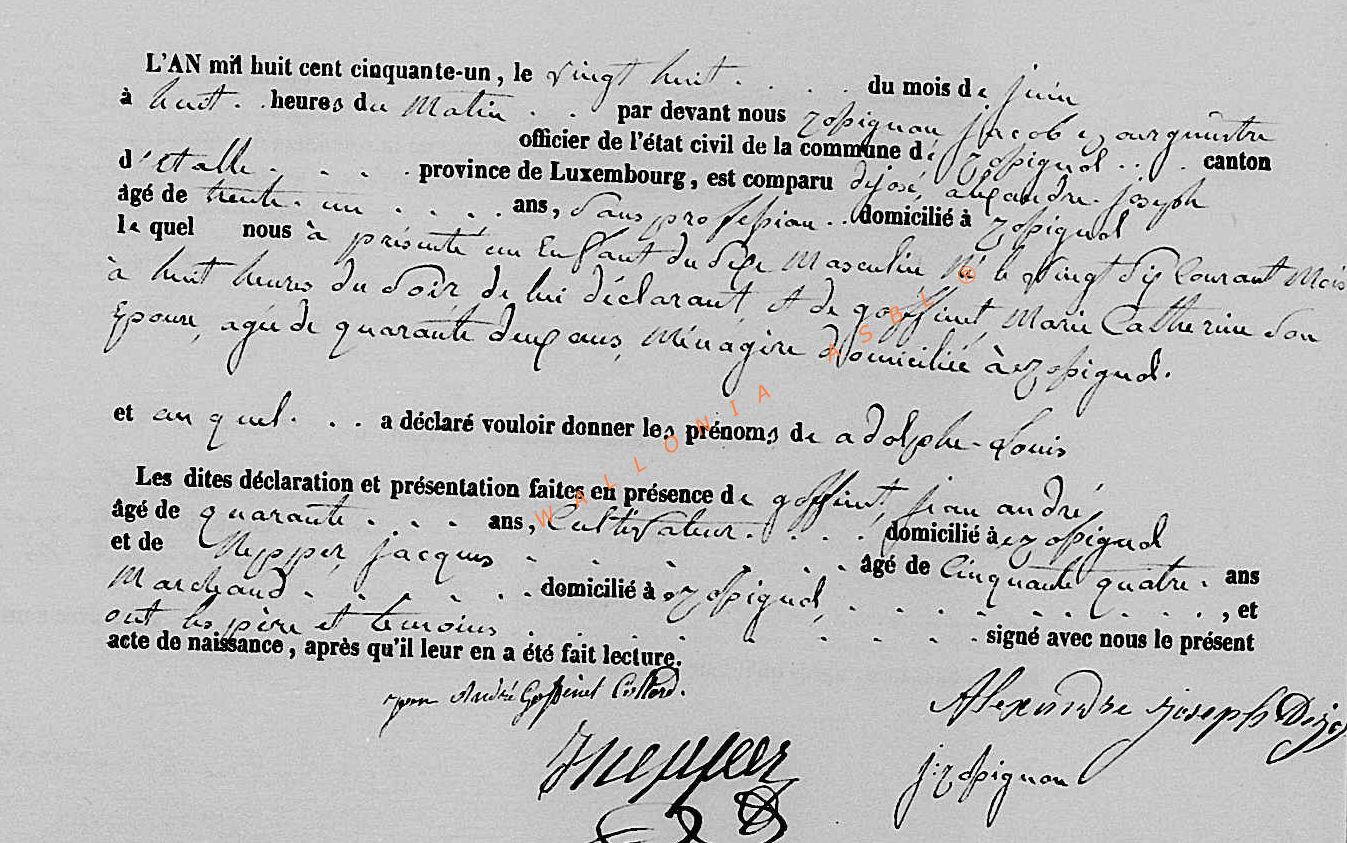 L'AN mil huit cent cinquante-un, le vingt huit . . . . du mois de juin
à huit . . heures du Matin . . par devant nous jacob
officier de l'état civil de la commune de . . . canton
d'étalle . . . . province de Luxembourg, est comparu alexandre joseph
âgé de trente un . . . . ans, Sans profession . . domicilié à
le quel nous à présenté un Enfant du Sexe Masculin né le Vingt Six Courant Mois
à huit heures du Soir, de lui déclarant, et de goffinet, Marie Catherine Son
Epouse, agée de quarante deux ans, Ménagère domiciliée à
et au quel . . . a déclaré vouloir donner les prénoms de adolphe-Louis
Les dites déclaration et présentation faites en présence de goffinet, jean andré,
âgé de quarante . . . . ans, Cultivateur . . . . domicilié à
et de jacques . . . . . . . âgé de Cinquante quatre . ans
Marchand . . . . . . domicilié à . . . . . . . . . , et
ont les père et temoins . . . . . . . . . signé avec nous le présent
acte de naissance, après qu'il leur en a été fait lecture.
André Goffinet Collard.
Alexandre joseph
WALLONIA ASBL ®